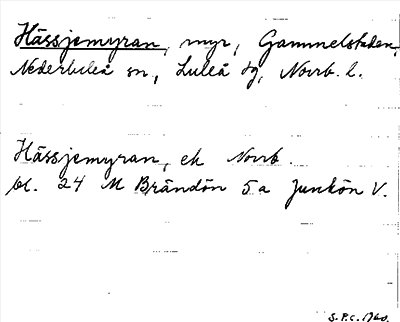 Hässjemyran, myr, Gammelstaden,
Nederluleå sn, Luleå tg, Norrb. l.
Hässjemyran, ek Norrb.
bl. 24 M Brändön 5 a Junkön V.
S.P.C. 1960.